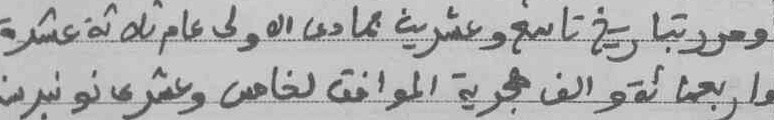 وحرر بتاريخ تاسع وعشرين جمادى الاولى عام ثلاثة عشرة
واربعمائة والف هجرية الموافق لخامس وعشرى نونبر